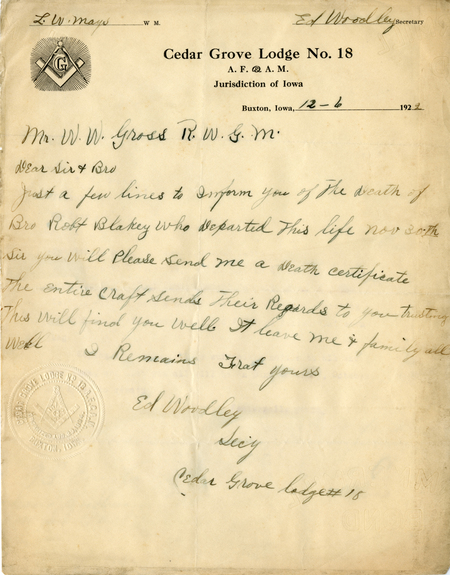 L. W. Mays W. M. Ed Woodley Secretary
G
Cedar Grove Lodge No. 18
A. F. & A. M.
Jurisdiction of Iowa
Buxton, Iowa, 12-6 192
Mr. W. W. Gross R. W. G. M.
Dear Sir & Bro
Just a few lines to inform you of the death of
Bro Robt Blakey who departed this life nov 30th
Sir you will Please send me a death certificate
The entire craft sends Their Regards to you trusting
This will find you well It leave me & family all
well
I Remains Frat yours
Ed Woodley
Secy
Cedar Grove lodge # 18
CEDAR GROVE LODGE NO. 18
BUXTON, IOWA